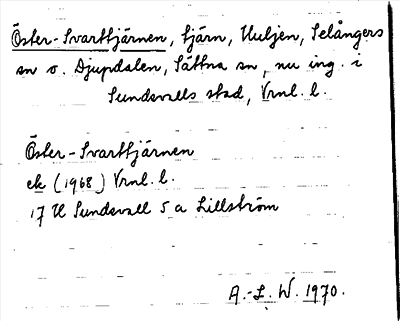 Öster-Svarttjärnen, tjärn, Huljen, Selångers
sn o. Djupdalen, Sättna sn, nu ing. i
Sundsvalls stad, Vrnl. l.
Öster-Svarttjärnen
ek (1968) Vrnl. l.
17 H Sundsvall 5 a Lillström
A.-L. W. 1970.